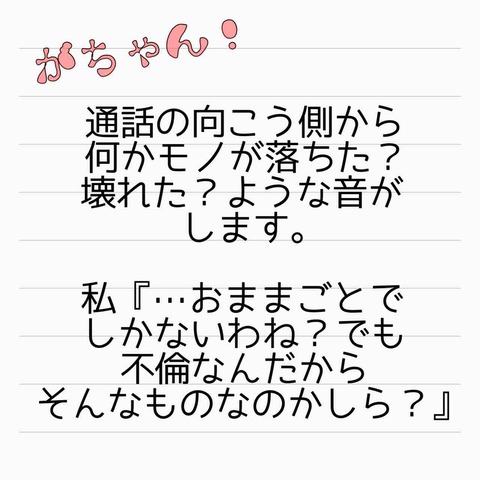 がちゃん！
通話の向こう側から
何かモノが落ちた？
壊れた？ような音が
します。
私『…おままごとで
しかないわね？でも
不倫なんだから
そんなものなのかしら？』